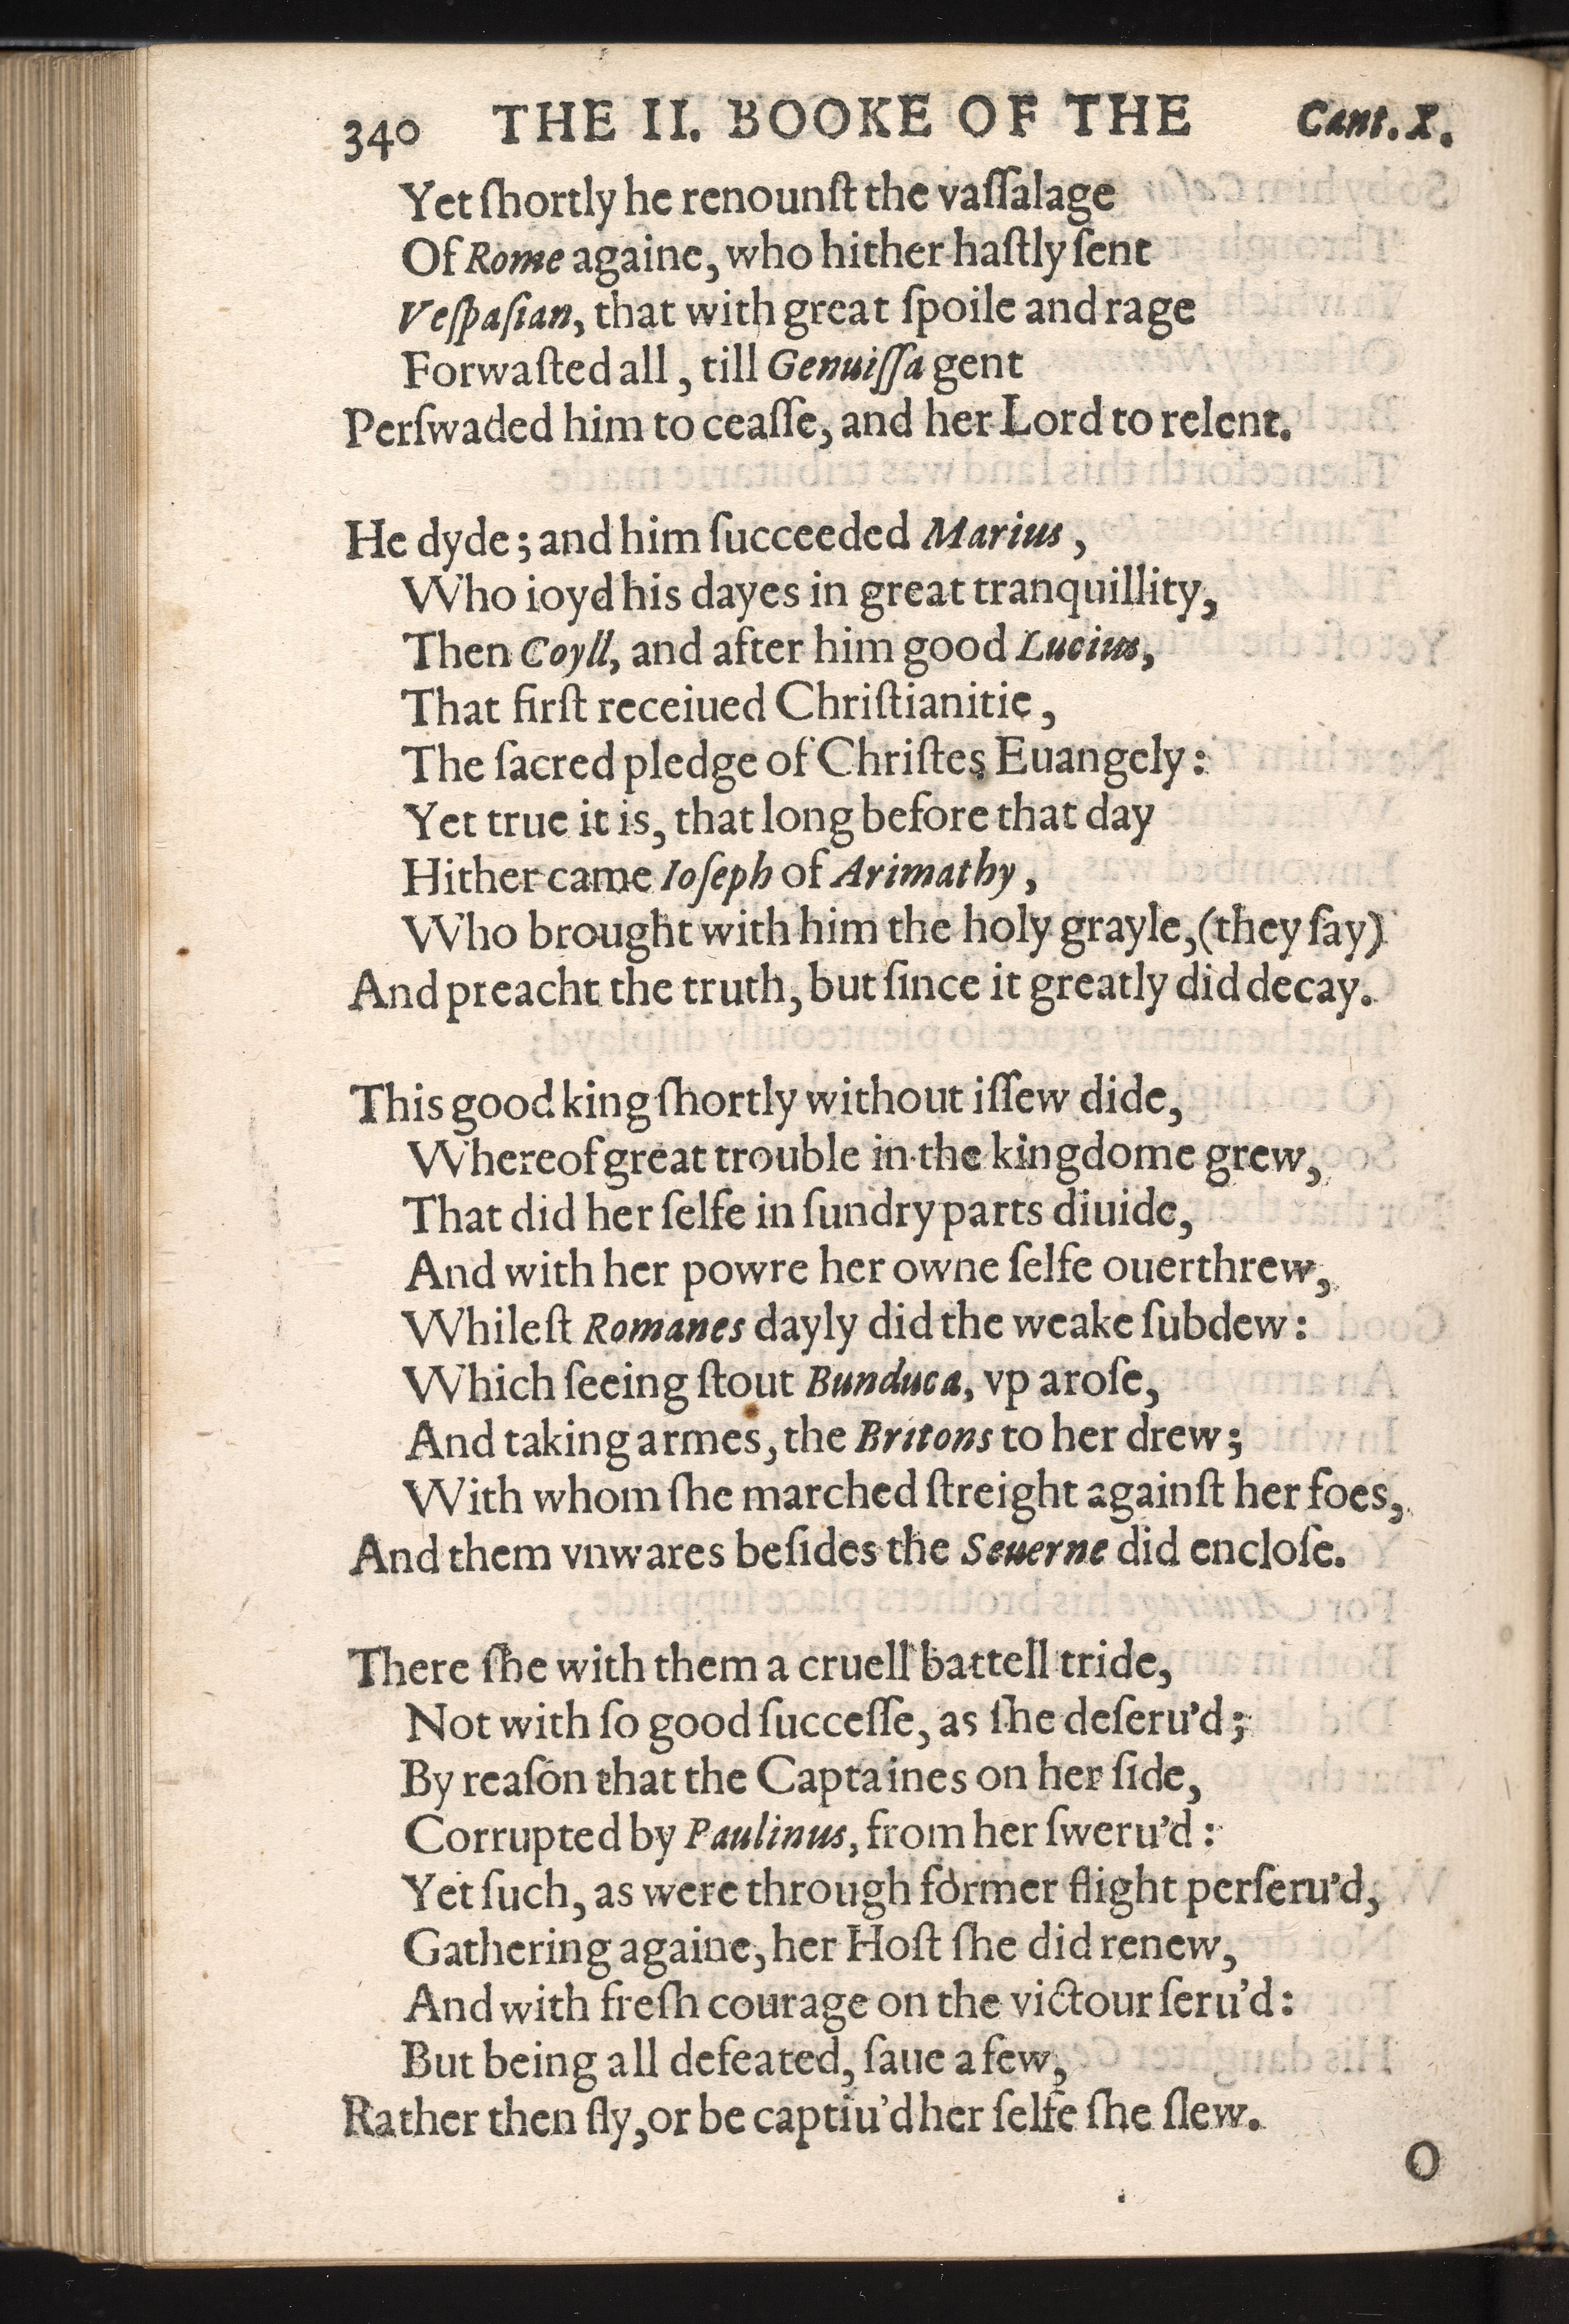 340 THE II. BOOKE OF THE Cant. X.
Yet ſhortly he renounſt the vaſſalage
Of Rome againe, who hither haſtly ſent
Veſpaſian, that with great ſpoile and rage
Forwaſted all, till Genuiſſa gent
Perſwaded him to ceaſſe, and her Lord to relent.
He dyde; and him ſucceeded Marius,
Who ioyd his dayes in great tranquillity,
Then Coyll, and after him good Lucius,
That firſt receiued Chriſtianitie,
The ſacred pledge of Chriſtes Euangely:
Yet true it is, that long before that day
Hither came Ioſeph of Arimathy,
Who brought with him the holy grayle, (they ſay)
And preacht the truth, but ſince it greatly did decay.
This good king ſhortly without iſſew dide,
Whereof great trouble in the kingdome grew,
That did her ſelfe in ſundry parts diuide,
And with her powre her owne ſelfe ouerthrew,
Whileſt Romanes dayly did the weake ſubdew:
Which ſeeing ſtout Bunduca, vp aroſe,
And taking armes, the Britons to her drew;
With whom ſhe marched ſtreight againſt her foes,
And them vnwares beſides the Seuerne did encloſe.
There ſhe with them a cruell battell tride,
Not with ſo good ſucceſſe, as ſhe deſeru'd;
By reaſon that the Captaines on her ſide,
Corrupted by Paulinus, from her ſweru'd:
Yet ſuch, as were through former flight perſeru'd,
Gathering againe, her Hoſt ſhe did renew,
And with freſh courage on the victour ſeru'd:
But being all defeated, ſaue a few,
Rather then fly, or be captiu'd her ſelfe ſhe ſlew.
O